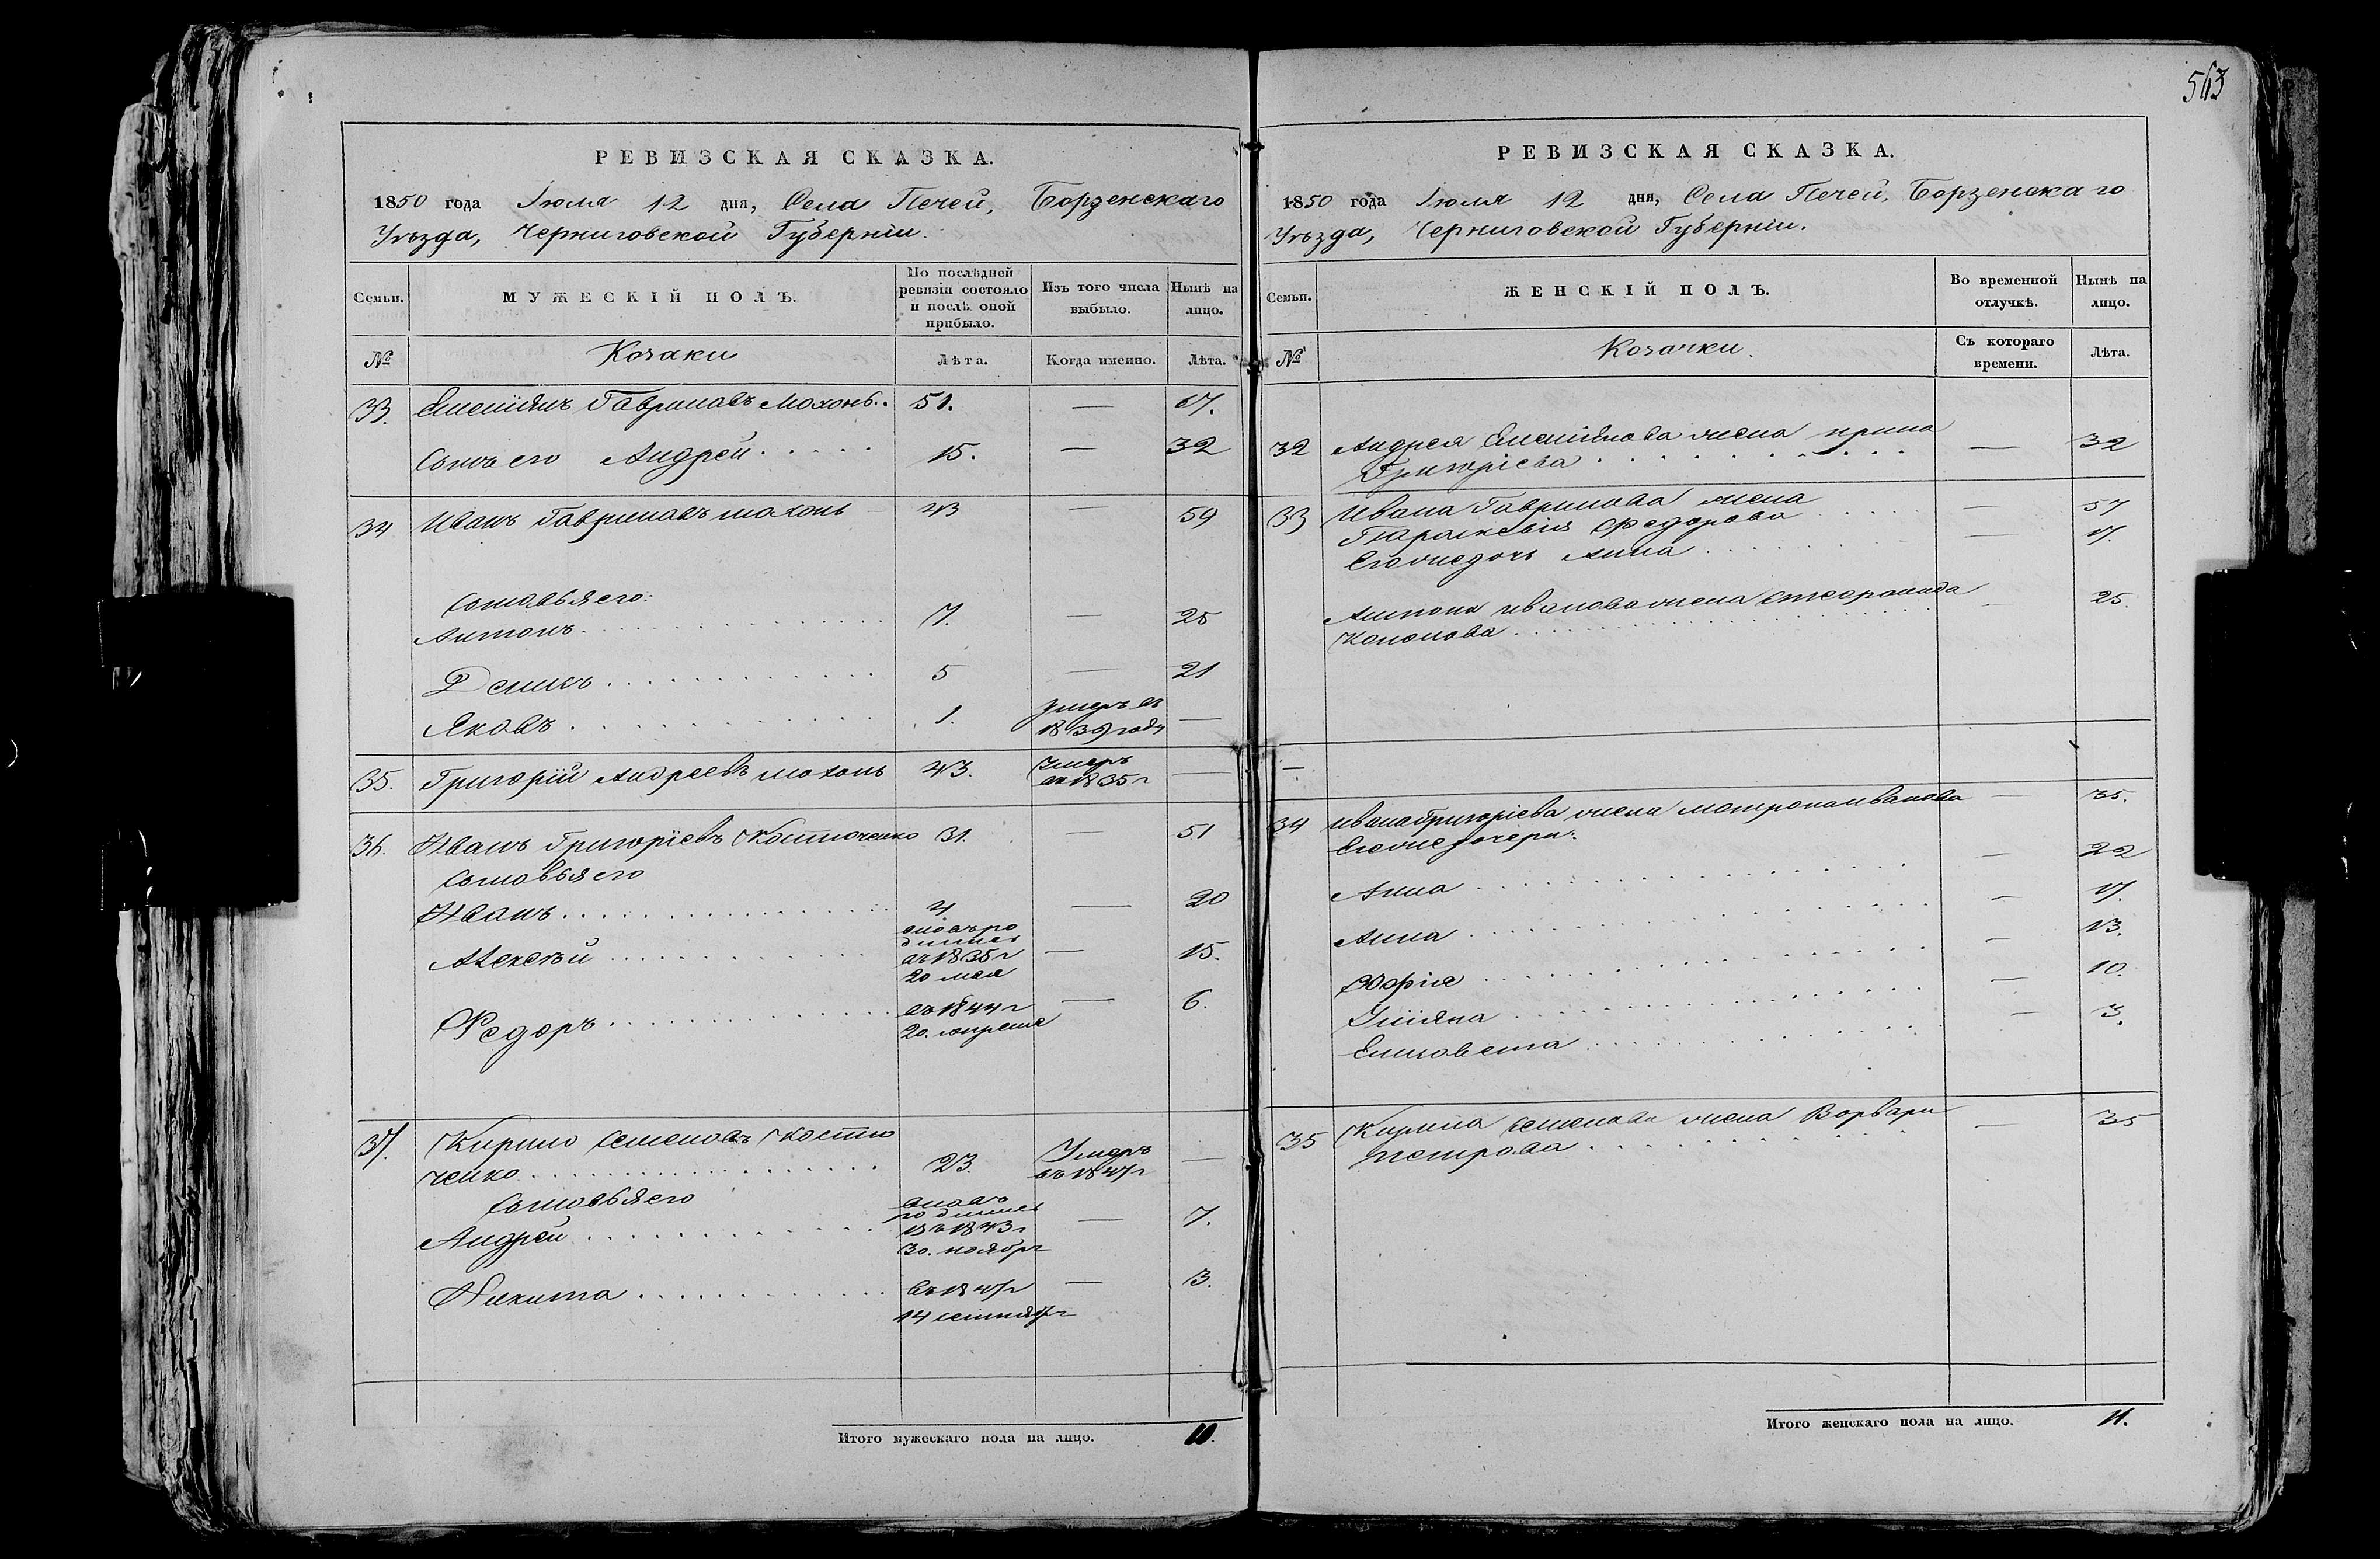 563
РЕВИЗСКАЯ СКАЗКА.
1850 года Іюля 12 дня, Села Печей, Борзенскаго
Уѣзда, Черниговской Губерніи.
Семьи.
МУЖЕСКІЙ ПОЛЪ.
По послѣдней
ревизіи состояло
и послѣ оной
прибыло.
Изъ того числа
выбыло.
Нынѣ на
лицо.
№
Козаки
Лѣта.
Когда именно.
Лѣта.
33. Емеліянъ Гавриловъ Мохонь. 51. —
Сынъ его Андрей 15. — 32
34 Иванъ Гавриловъ Мохонь 43 — 59
Сыновья его:
Антонъ 7. — 25
Демидъ 5 — 21
Яковъ 1. умеръ въ —
1839 году
35. Григорій Андреевъ Мохонь 43. Умеръ —
въ 1835 г
36. Иванъ Григоріевъ Костюченко 31. — 51
Сыновья его
Иванъ 4 — 20
вновь ро
дился
Алексѣй въ 1835 г — 15.
20 мая
Федоръ въ 1844 г — 6.
20. апреля
37. Кирило Семеновъ Костю
ченко 23. Умеръ —
въ 1847 г
Сыновья его вновь
родился
Андрей въ 1843 г — 7.
30. ноября
Никита въ 1847 г — 3.
14 сентября
Итого мужескаго пола на лицо. 10.
РЕВИЗСКАЯ СКАЗКА.
1850 года Іюля 12 дня, Села Печей, Борзенскаго
Уѣзда, Черниговской Губерніи.
Семьи.
ЖЕНСКІЙ ПОЛЪ.
Во временной
отлучкѣ.
Нынѣ на
лицо.
№
Козачки.
Съ котораго
времени.
Лѣта.
32 Андрея Емеліянова жена Ирина — 32
Григоріева
33 Ивана Гаврилова жена
Параскевія Федорова — 57
Его же дочь Анна — 17
Антона Иванова жена 25.
Кононова
—
34 Ивана Григоріева жена Мотрона Иванова — 35.
Его же дочери:
Анна — 22
Анна — 17.
Софія — 13.
Уліяна — 10.
Елисавета — 3.
35 Кирила Семенова жена Варвара — 35
Петрова
Итого женскаго пола на лицо. 11.